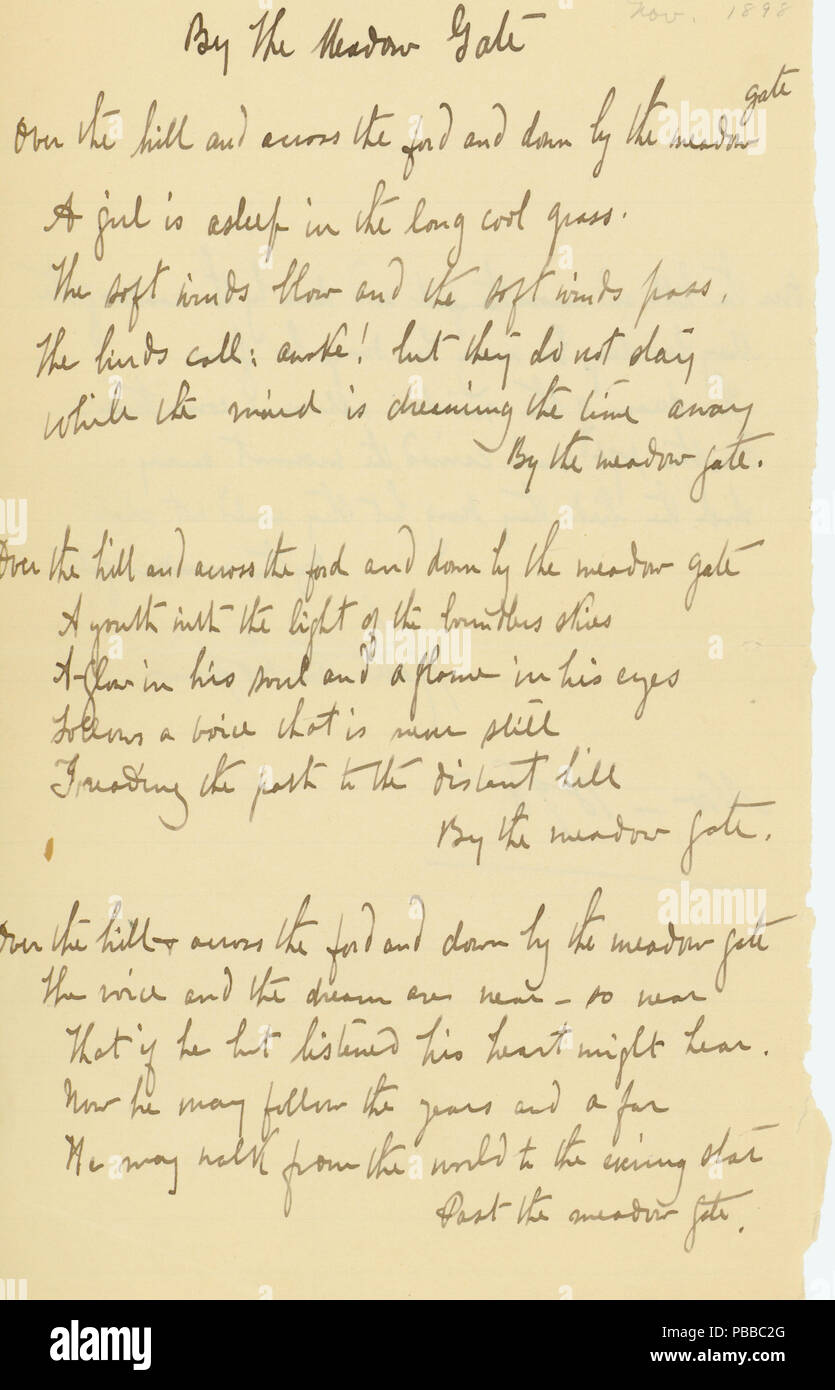 Nov. 1898
By the Meadow Gate
Over the hill and across the ford and down by the meadow gate
A girl is asleep in the long cool grass.
The soft winds blow and the soft winds pass,
The birds call: awake! but they do not stay
While the maid is dreaming the time away
By the meadow gate.
Over the hill and across the ford and down by the meadow gate
A youth with the light of the boundless skies
A-glow in his soul and a flame in his eyes
Follows a voice that is never still
Treading the path to the distant hill
By the meadow gate.
Over the hill & across the ford and down by the meadow gate
The voice and the dream are near - so near
That if he but listened his heart might hear.
Now he may follow the years and a far
He may walk from the world to the evening star
Past the meadow gate.
alamy
Image ID: PBBC2G
www.alamy.com